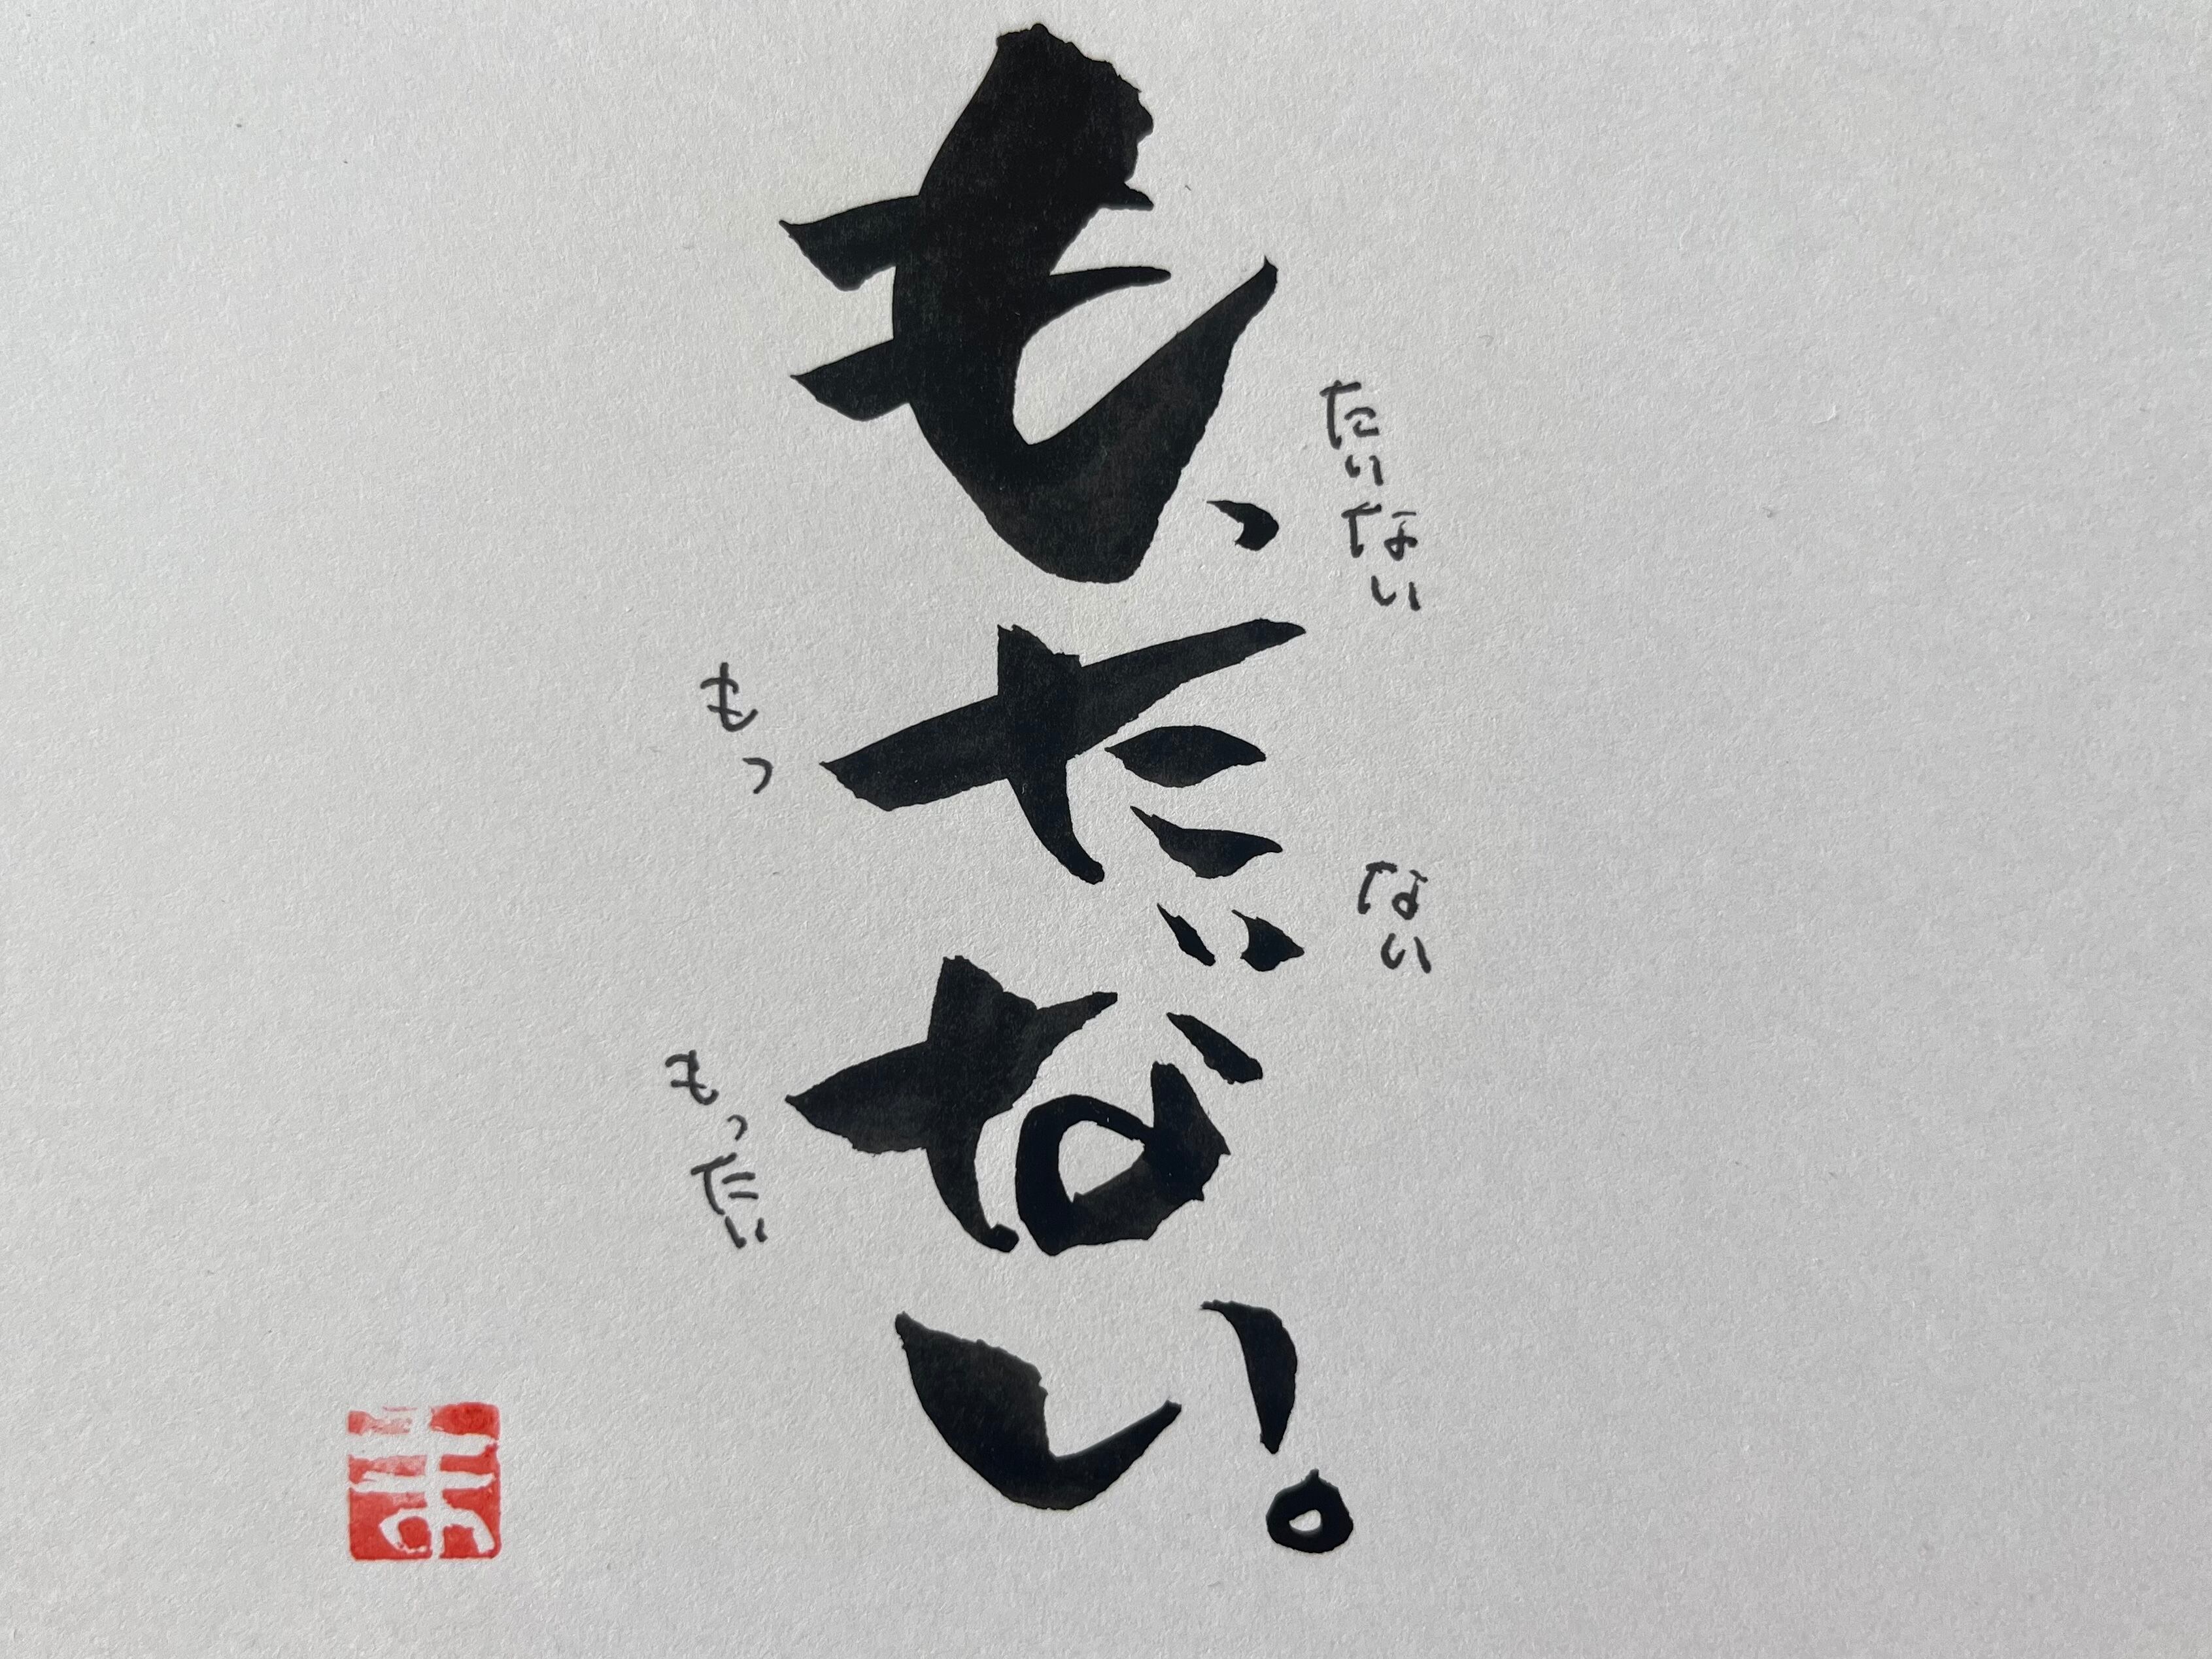 たいない
ない
もったいない。
もっ
もったい